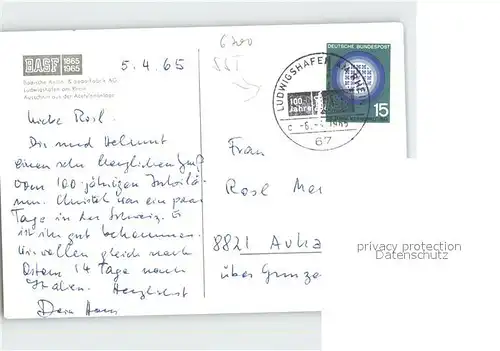 BASF 1865 1965
Badische Anilin- & Soda-Fabrik AG
Ludwigshafen am Rhein
Ausschnitt aus der Acetylenanlage
5.4.65
6700
SST
DEUTSCHE BUNDESPOST
15
LUDWIGSHAFEN AM RHEIN
100 Jahre BASF
c -6.-4.1965
67
Liebe Rosl.
Dir und Helmut
einen sehr herzlichen Gruß
vom 100-jährigen Jubilä-
um. Christel war ein paar
Tage in der Schweiz. Es
ist ihr gut bekommen.
Wir wollen gleich nach
Ostern 14 Tage nach
Italien. Herzlichst
Dein Hans
Frau
Rosl Mei
8821 Auha
über Gunze
privacy protection
Datenschutz